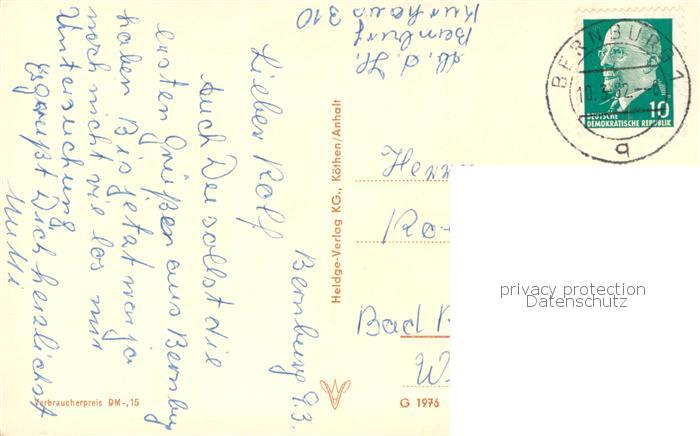 Abs. J. H.
Bernburg
Kurhaus 310
Bernburg 9.3.
Lieber Rolf
Auch Du sollst die
ersten Grüße aus Bernburg
haben Bis jetzt war ja
noch nicht viel los nur
Untersuchung
Es grüßt Dich herzlichst
Mutti
Verbraucherpreis DM -,15
Heldge-Verlag KG., Köthen/Anhalt
G 1976
BERNBURG 1
10
DEUTSCHE
DEMOKRATISCHE REPUBLIK
q
Herrn
Bad
privacy protection
Datenschutz